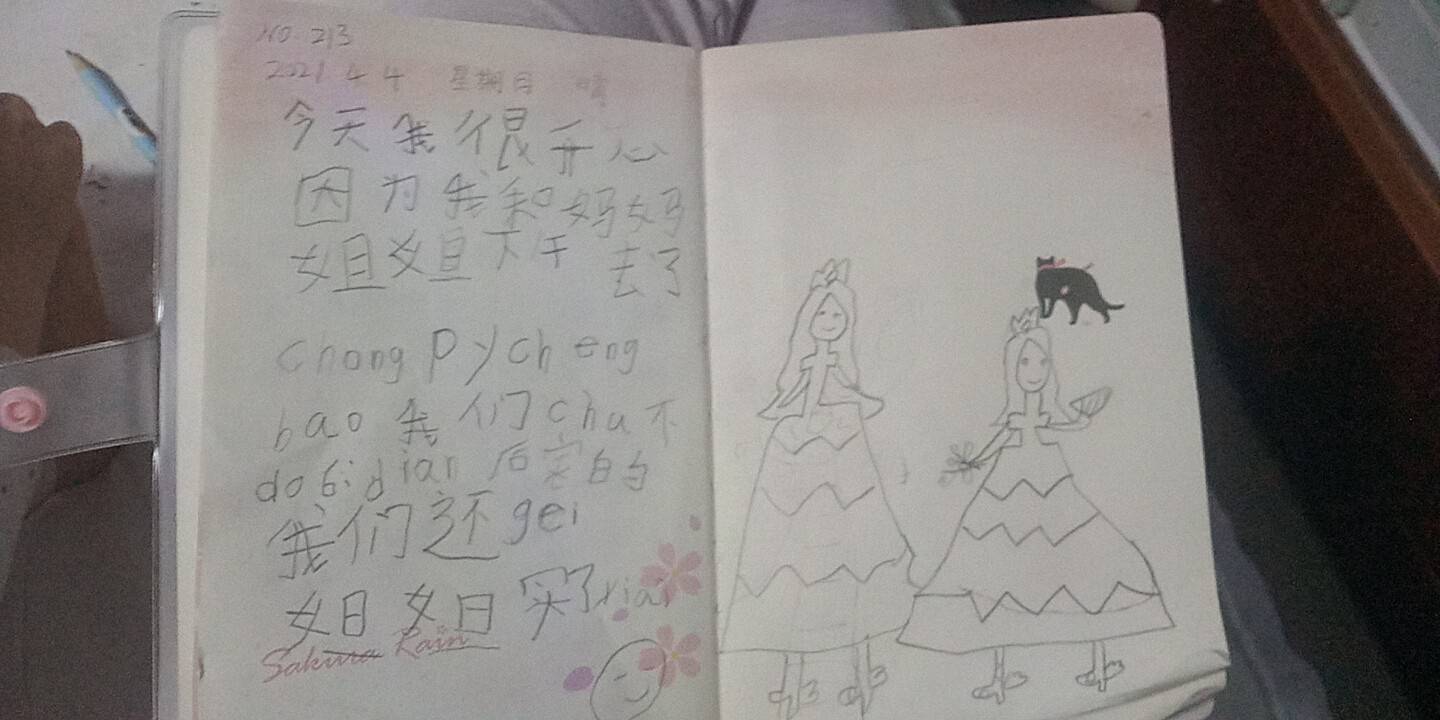 NO. 213
2021 4 4 星期日 晴
今天我很开心
因为我和妈妈
姐姐下午去了
chong p y ch eng
bao 我们 cha 不
do 6:dian 后 的
我们还 gei
姐姐买了 xiao
Sakura Rain